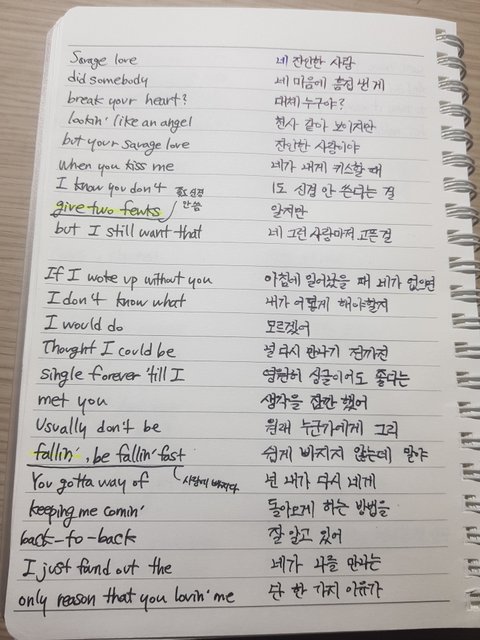 Savage love 네 잔인한 사랑
did somebody 네 마음에 흠집 낸 게
break your heart? 대체 누구야?
lookin' like an angel 천사 같아 보이지만
but your savage love 잔인한 사랑이야
when you kiss me 네가 내게 키스할 때
I know you don't 1도 신경 안 쓴다는 걸
신경
안 씀
give two fewks 알지만
but I still want that 네 그런 사랑마저 고픈 걸
If I woke up without you 아침에 일어났을 때 네가 없으면
I don't know what 내가 어떻게 해야할지
I would do 모르겠어
Thought I could be 널 다시 만나기 전까진
single forever 'till I 영원히 싱글이어도 좋다는
met you 생각을 잠깐 했어
Usually don't be 원래 누군가에게 그리
fallin', be fallin' fast 쉽게 빠지지 않는데 말야
사랑에 빠지다
You gotta way of 넌 내가 다시 네게
keeping me comin' 돌아오게 하는 방법을
back-to-back 잘 알고 있어
I just fand out the 네가 나를 만나는
only reason that you lovin' me 단 한 가지 이유가